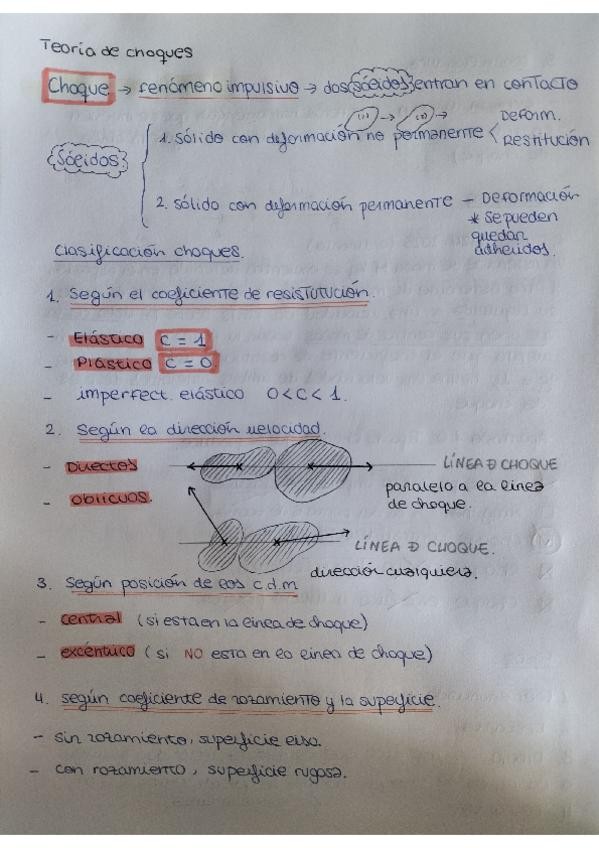 Teoría de choques
Choque → fenómeno impulsivo → dos sólidos entran en contacto
Sólidos
1. Sólido con deformación no permanente < Deform.
Restitución
(1) → (2) →
2. sólido con deformación permanente - Deformación
* se pueden
quedar
adheridos.
Clasificación choques.
1. Según el coeficiente de resistutución.
- Elástico C = 1
- Plástico C = 0
- imperfect. elástico 0 < C < 1.
2. Según la dirección velocidad.
- Directos
LÍNEA D CHOQUE
paralelo a la línea
de choque.
- Oblicuos.
LÍNEA D CHOQUE.
dirección cualquiera.
3. Según posición de los c.d.m
- central (si esta en la línea de choque)
- excéntrico (si NO esta en la línea de choque)
4. según coeficiente de rozamiento y la superficie.
- sin rozamiento, superficie lisa.
- con rozamiento, superficie rugosa.